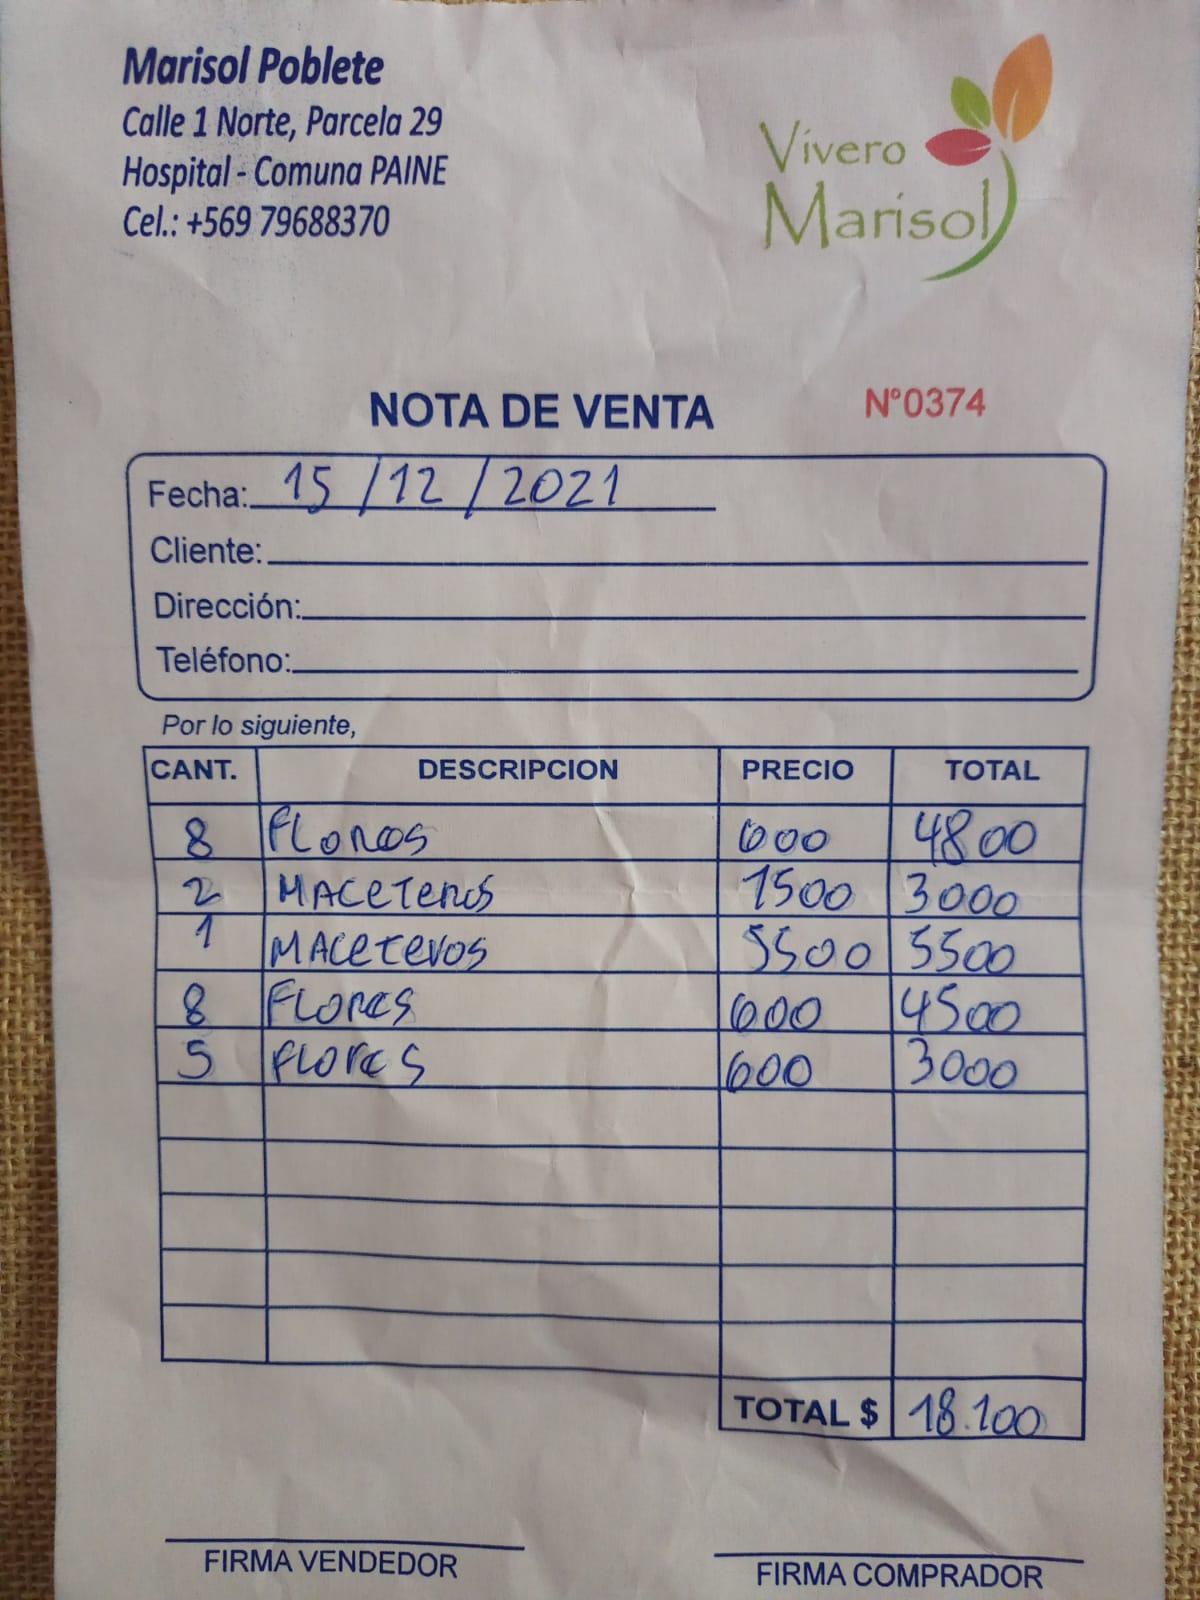 Marisol Poblete
Calle 1 Norte, Parcela 29
Hospital - Comuna PAINE
Cel.: +569 79688370
Vivero
Marisol
NOTA DE VENTA N°0374
Fecha: 15/12/2021
Cliente:
Dirección:
Teléfono:
Por lo siguiente,
CANT. DESCRIPCION PRECIO TOTAL
8 FLORES 600 4800
2 MACETEROS 1500 3000
1 MACETEROS 5500 5500
8 FLORES 600 4500
5 FLORES 600 3000
TOTAL $ 18.100
FIRMA VENDEDOR FIRMA COMPRADOR